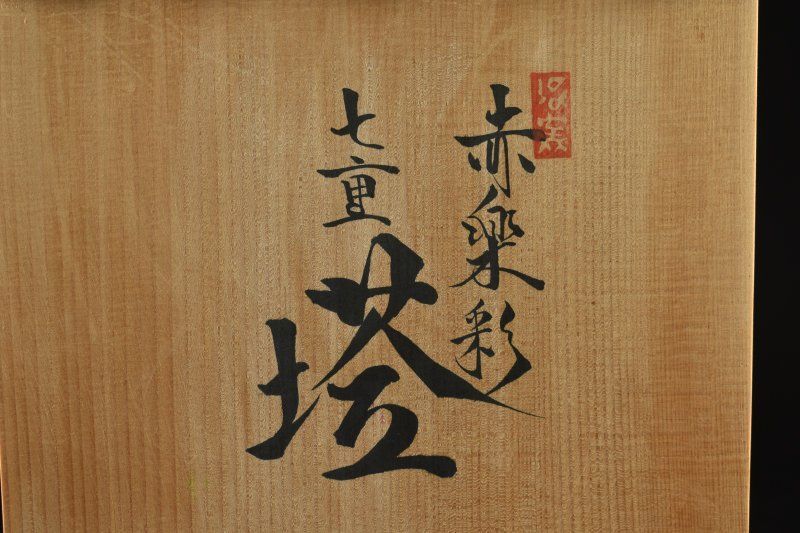 赤楽彩
七重
塔